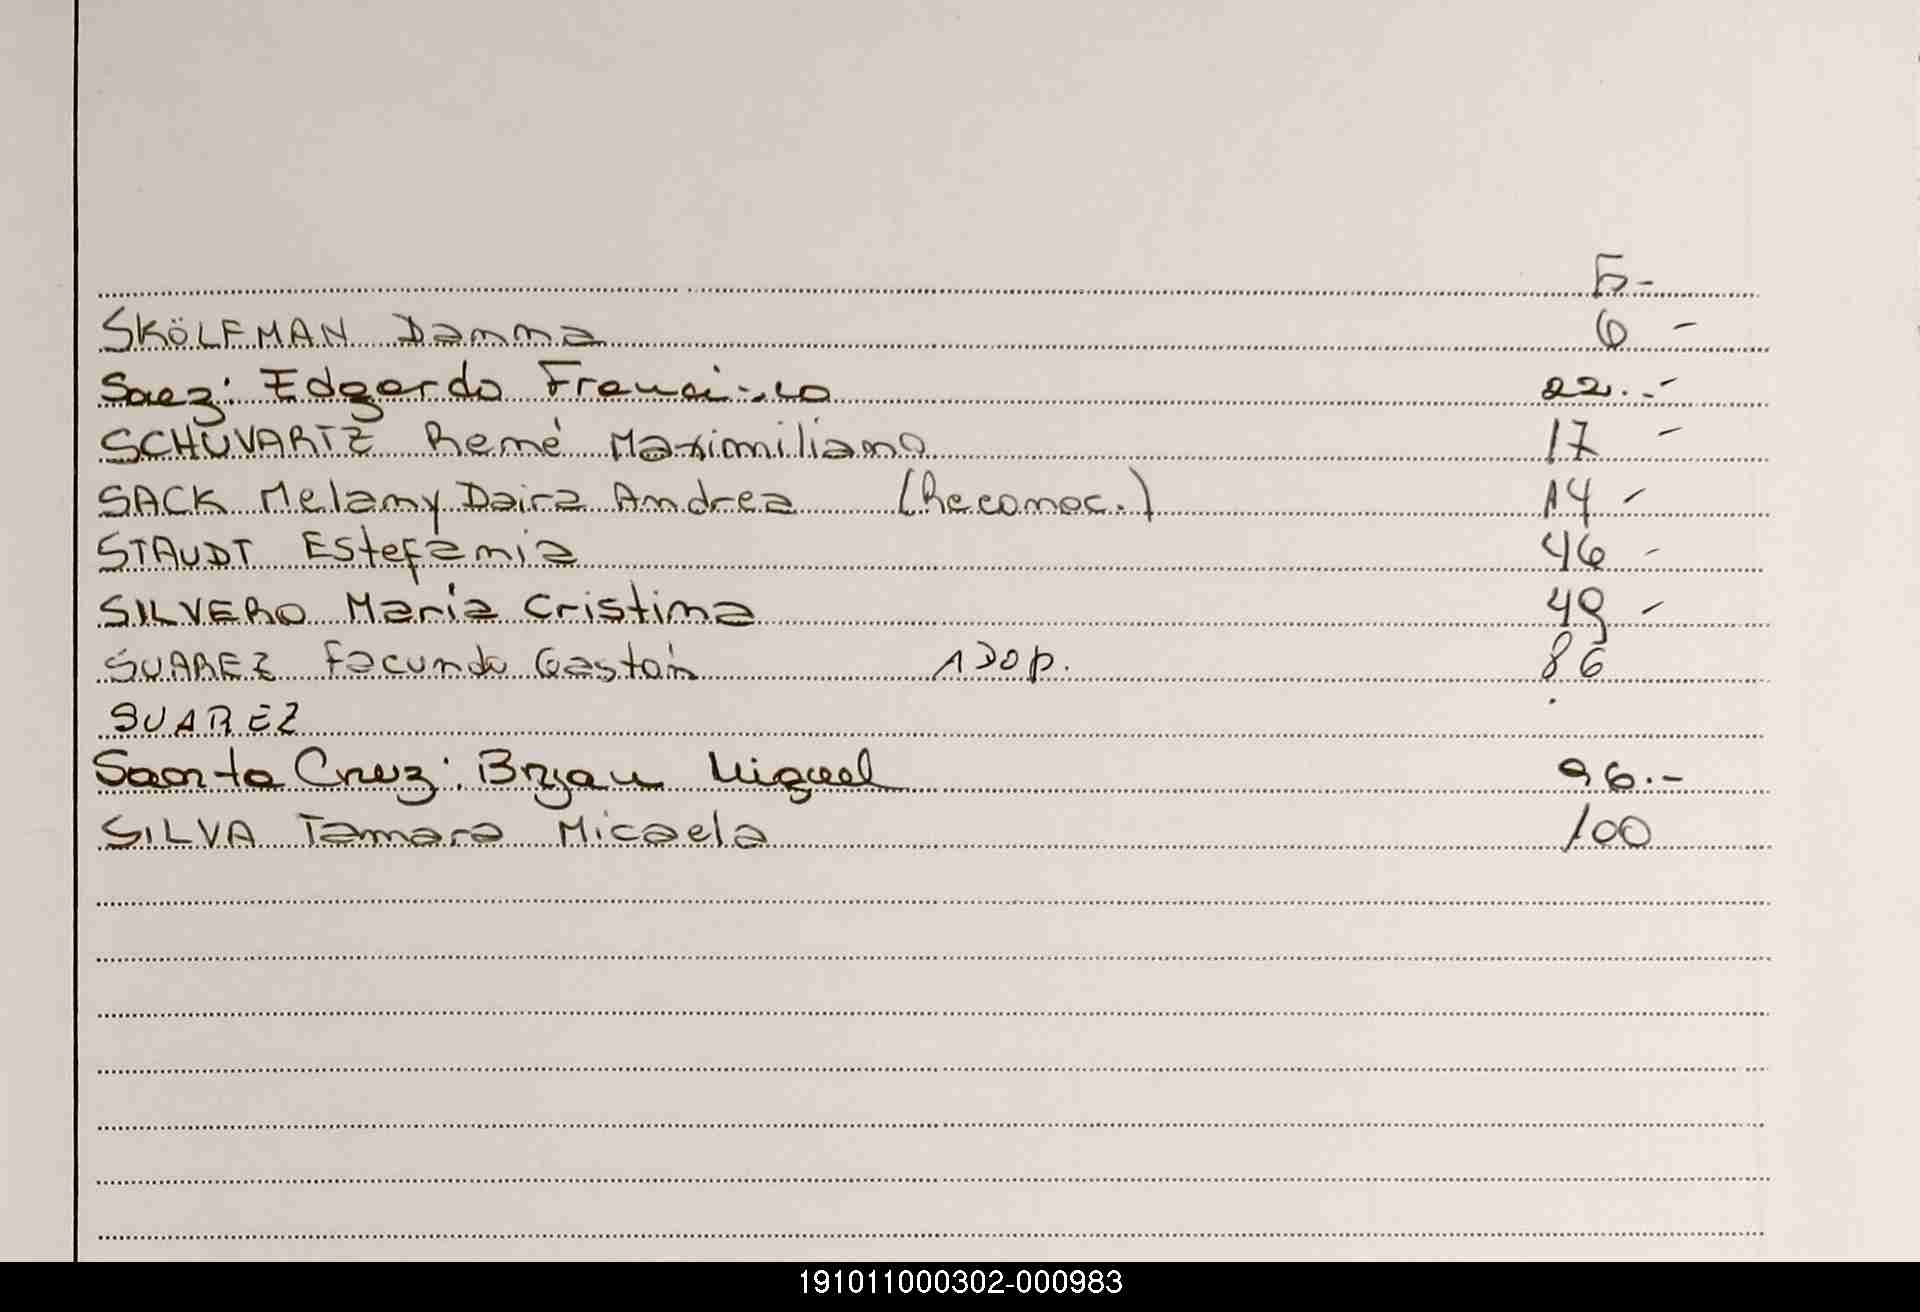 Fº-
SKÖLFMAN Danna 6 -
Saez: Edgardo Francisco 22.-
SCHUVARTZ René Maximiliano 17 -
SACK Melany Daira Andrea (Reconoc.) 14 -
STAUDT Estefania 46 -
SILVERO Maria Cristina 49 -
SUAREZ Facundo Gastón ADOP. 86
SUAREZ
Santa Cruz: Bryan Miguel 96.-
SILVA Tamara Micaela 100
191011000302-000983